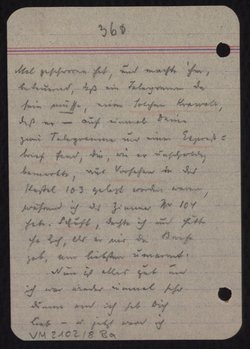 368
Mal geschworen hat, und machte ihm,
bekannt, daß ein Telegramm da
sein müsse, einen solchen Krawall,
daß er — auf einmal Deine
zwei Telegramme und einen Express-
brief fand, die, wie er unschuldig
bemerkte, aus Versehen in der
Kastel 103 gelegt worden waren,
während ich das Zimmer Nr 104
habe. Schuft, dachte ich und hätte
ihn, als er mir die Briefe
gab, am liebsten umarmt.
Nun ist alles gut und
ich war wieder einmal sehr
dumm und ich hab Dich
lieb — u jetzt werd ich
VM 2102/8 Ra